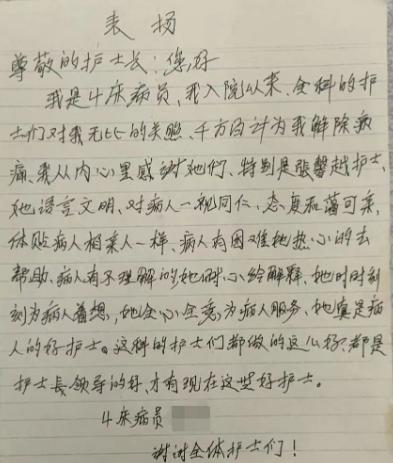 表扬
尊敬的护士长：您好
我是4床病员、我入院以来、全科的护
士们对我无比的关照、千方百计为我解除病
痛、我从内心里感谢她们、特别是張馨越护士、
她语言文明、对病人一视同仁、态度和蔼可亲、
体贴病人相亲人一样、病人有困难她热心的去
帮助、病人有不理解的她耐心给解释、她时时刻
刻为病人着想，她全心全意为病人服务、她真是病
人的好护士。这科的护士们都做的这么好、都是
护士長领导的好、才有现在这些好护士。
4床病员
谢谢全体护士们！